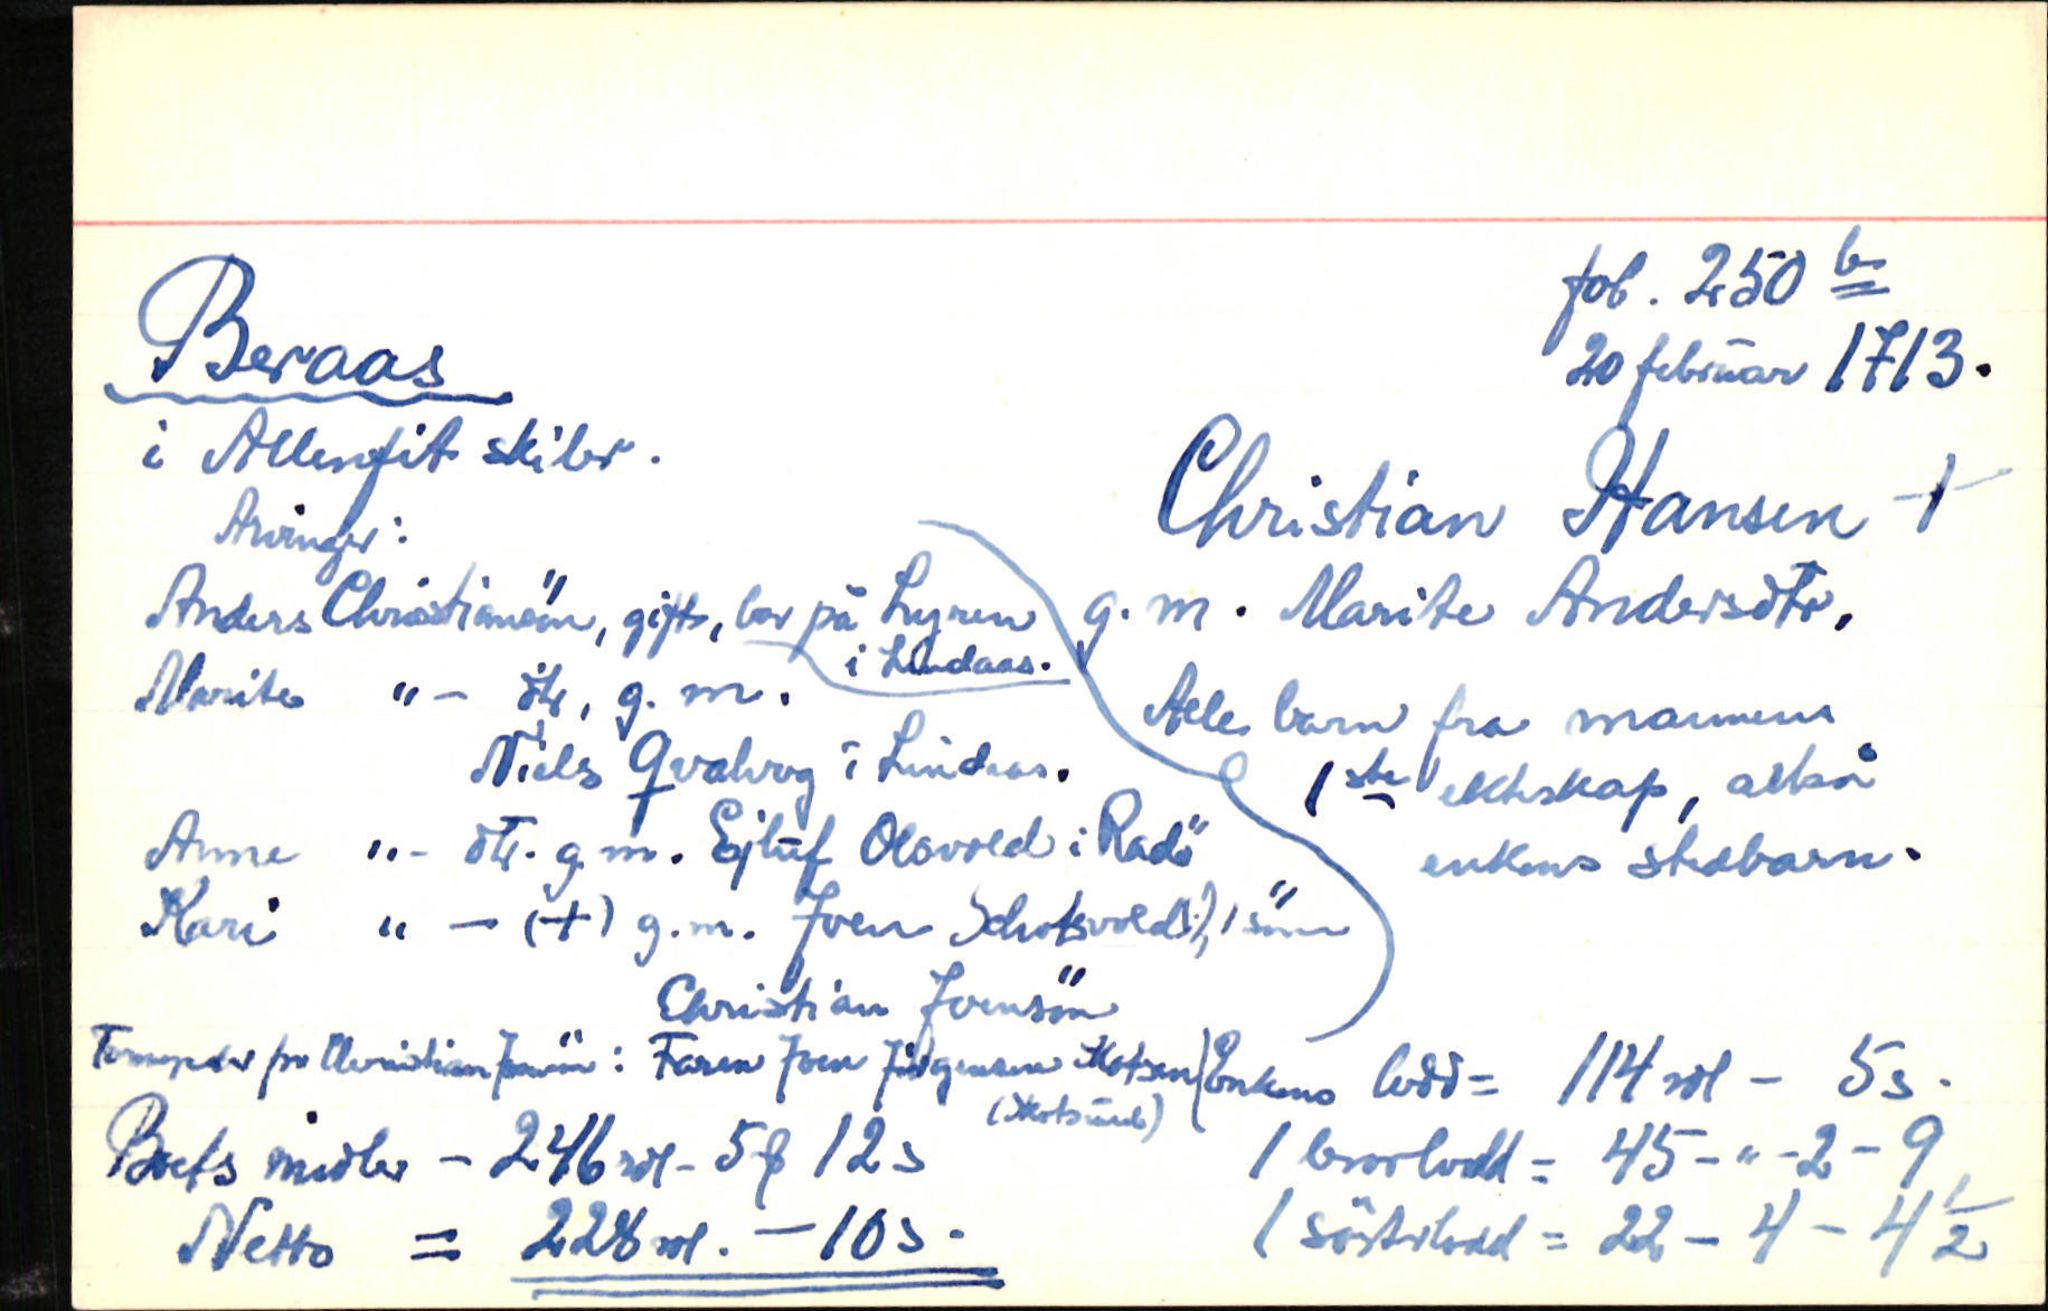 Beraas
i Allenfit skibr.
fol. 250 b
20 februar 1713.
Christian Hansen †
g. m. Marite Andersdtr.
Alle barn fra mannens
1ste ekteskap, altså
enkens stedbarn.
Arvinger:
Anders Christiansön, gift, bor på Lyren
i Lindaas.
Marite " – dtr, g. m.
Niels Qvalvog i Lindaas.
Anne " - dtr. g. m. Ejluf Olsvold i Radö
Kari " – (+) g. m. Joen Schotsvold(?), 1 sön
Christian Joensön
Formynder for Christian Joensön: Faren Joen Jörgensen
Boets midler – 246 rdl – 5 ℔ 12 s
Netto = 228 rdl. – 10 s.
Enkens lodd = 114 rdl – 5 s.
1 brorlodd = 45 - " - 2 - 9
1 sösterlodd = 22 – 4 – 4 1/2